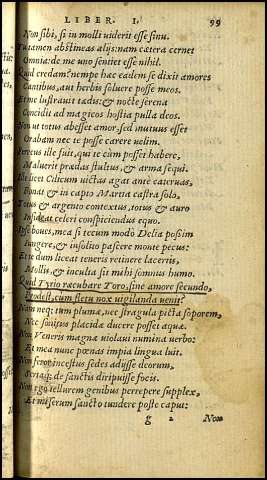 LIBER. I. 99
Non sibi, si in molli viderit esse sinu.
Tu tamen abstineas alijs: nam cætera cernet
Omnia: de me uno sentiet esse nihil.
Quid credam? nempe hæc eadem se dixit amores
Cantibus, aut herbis soluere posse meos.
Et me lustrauit tædis: & nocte serena
Concidit ad magicos hostia pulla deos.
Non ut totus abesset amor, sed mutuus esset
Orabam nec te posse carere uelim.
Ferreus ille fuit, qui te cùm posset habere,
Maluerit prædas stultus, & arma sequi.
Ille licet Cilicum uictas agat ante cateruas,
Ponat & in capto Martia castra solo,
Totus & argento contextus, totus & auro
Insideat celeri conspiciendus equo.
Ipse boues, mea si tecum modò Delia possim
Iungere, & insolito pascere monte pecus:
Et te dum liceat teneris retinere lacertis,
Mollis, & inculta sit mihi somnus humo.
Quid Tyrio recubare Toro, sine amore secundo,
Prodest, cum fletu nox uigilanda uenit?
Nam neq; tum plumæ, nec stragula picta soporem,
Nec sonitus placidæ ducere posset aquæ.
Non Veneris magnæ uiolaui numina uerbo:
Et mea nunc pœnas impia lingua luit.
Non feror incestus sedes adijsse deorum,
Sertaq; de sanctis diripuisse focis.
Non ego tellurem genibus perrepere supplex,
Et miserum sancto tundere poste caput:
g 2 Non